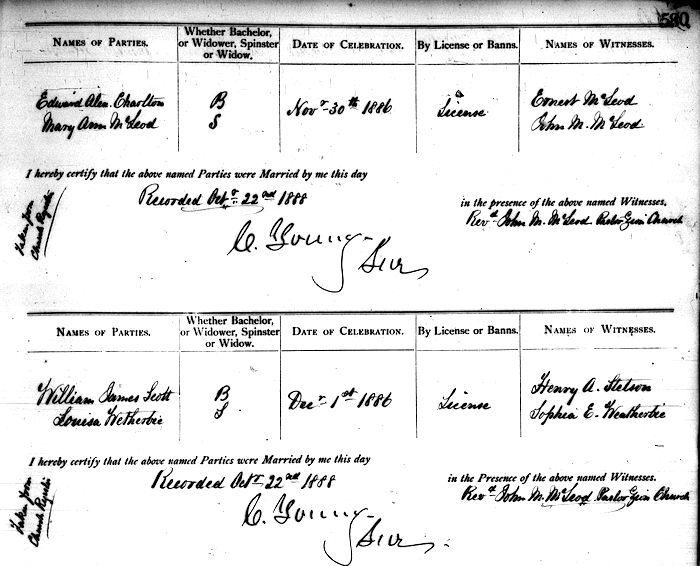 580
NAMES OF PARTIES. Whether Bachelor, or Widower, Spinster or Widow. DATE OF CELEBRATION. By License or Banns. NAMES OF WITNESSES.
Edward Alen. Charlton B Novr 30th 1886 License Ernest McLeod
Mary Ann McLeod S John M. McLeod
I hereby certify that the above named Parties were Married by me this day
Recorded Octr 22nd 1888 in the presence of the above named Witnesses.
Taken from Church Register Revd John M. McLeod Pastor Zion Church
C. Young
NAMES OF PARTIES. Whether Bachelor, or Widower, Spinster or Widow. DATE OF CELEBRATION. By License or Banns. NAMES OF WITNESSES.
William James Scott B Decr 1st 1886 License Henry A. Stetson
Louisa Wetherbie S Sophia E. Weatherbie
I hereby certify that the above named Parties were Married by me this day
Recorded Octr 22nd 1888 in the Presence of the above named Witnesses.
Taken from Church Register Revd John M. McLeod Pastor Zion Church
C. Young